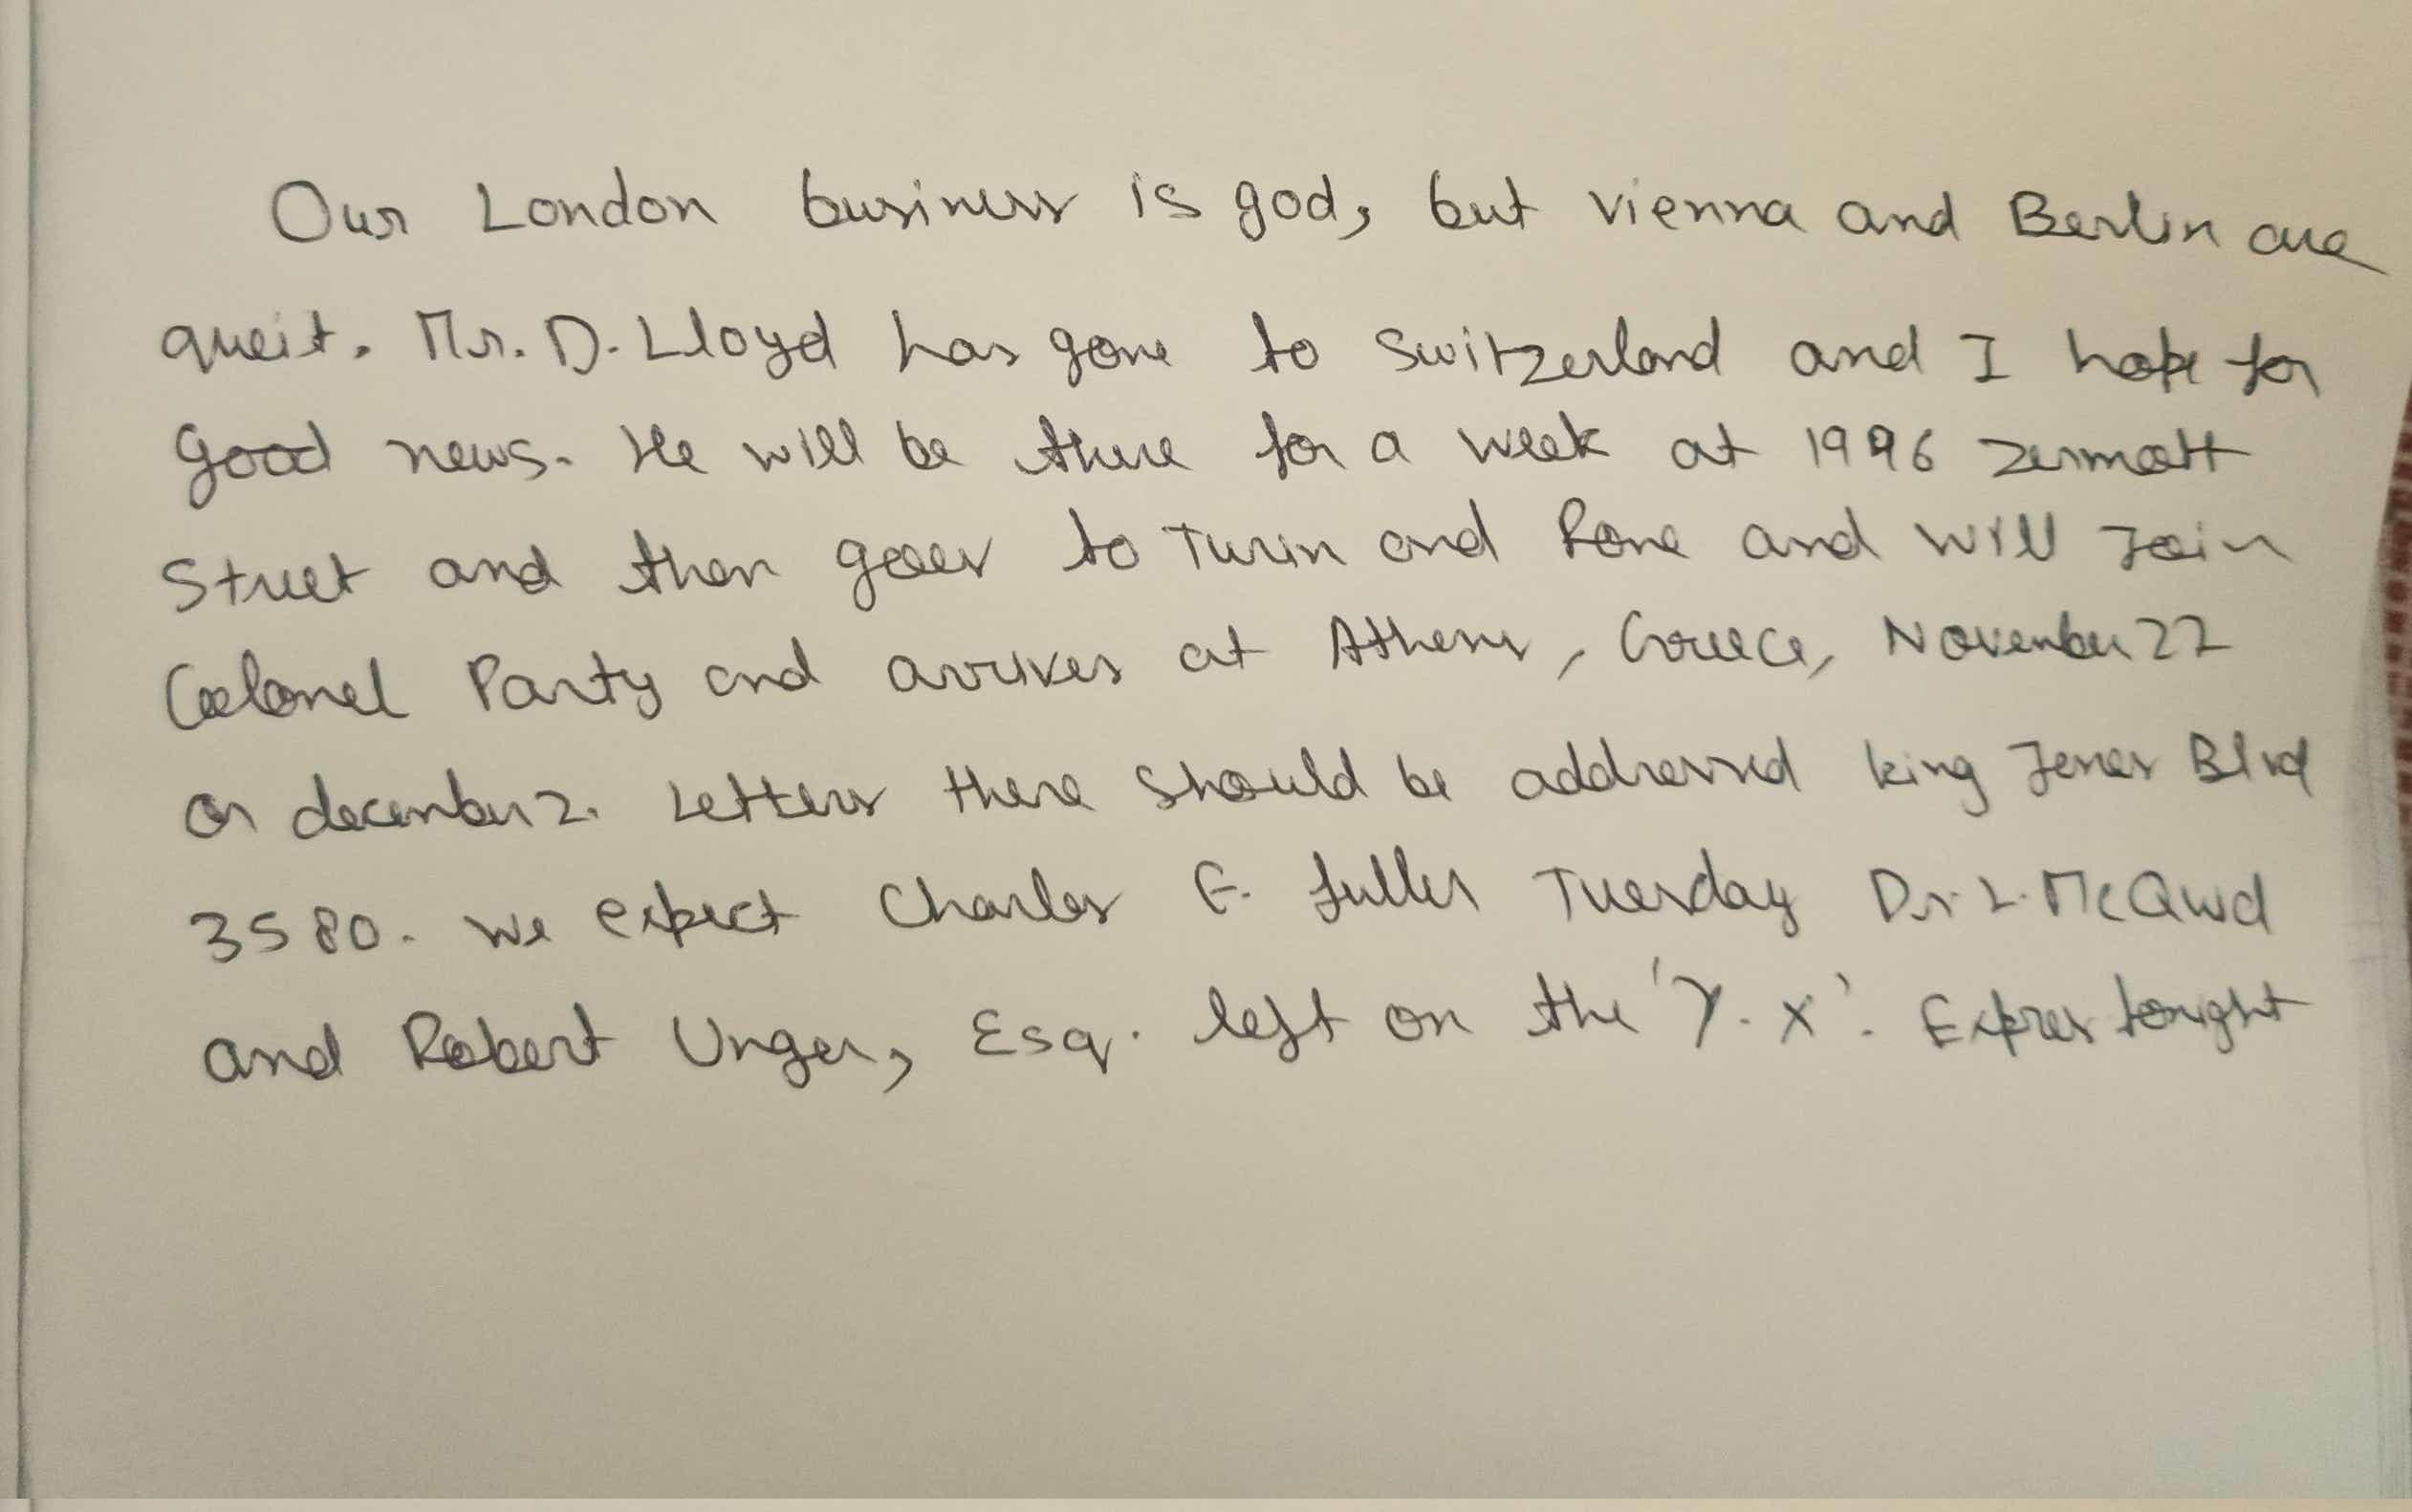 Our London business is god, but vienna and Berlin are
queit. Mr. D. Lloyd has gone to Switzerland and I hope for
good news. He will be there for a week at 1996 zermatt
Street and then goes to Turin and Rome and will Join
Colonel Party and arrives at Athens, Greece, November 22
or december 2. Letters there should be addressed king James Blvd
3580. we expect Charles E. fuller Tuesday Dr. L. McQuid
and Robert Unger, Esq. left on the 'Y. X'. Express tonight